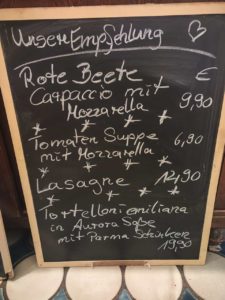 Unser Empfehlung
Rote Beete €
Carpaccio mit
Mozzarella 9,90
* * * *
Tomaten Suppe 6,90
mit Mozzarella
* * * *
Lasagne 12,90
* * * *
Tortelloni emiliana
in Aurora Soße
mit Parma Schinken
19,90